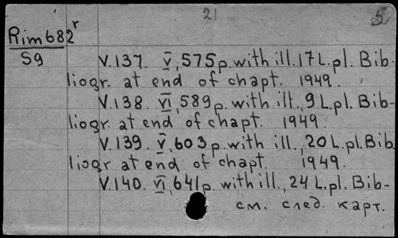 21 5
Rim682r
S9
V.137. V, 575p. with ill. 17 L. pl. Bib-
liogr. at end of chapt. 1949.
V.138. VI, 589p. with ill., 9 L. pl. Bib-
liogr. at end of chapt. 1949.
V.139. V, 603p. with ill., 20 L. pl. Bib
liogr at end of chapt. 1949.
V.140. VI, 641p. with ill., 24 L. pl. Bib-
см. след. карт.